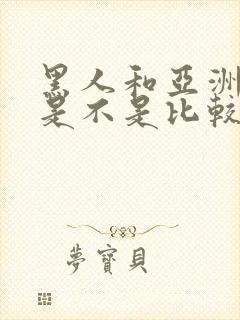 黑人和亞洲
是不是比較
夢寶貝